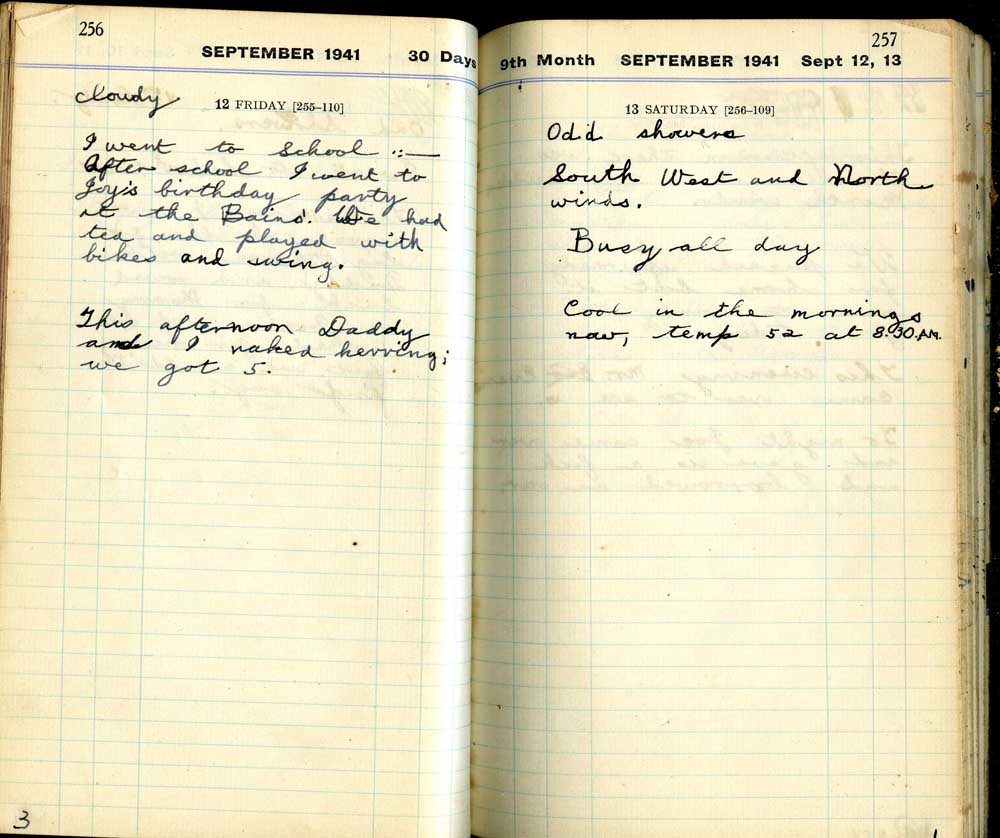 256
SEPTEMBER 1941 30 Days
cloudy
12 FRIDAY [255–110]
I went to School
After school I went to
Joy's birthday party
at the Bains'. We had
tea and played with
bikes and swing.
This afternoon Daddy
and I raked herring;
we got 5.
3
257
9th Month SEPTEMBER 1941 Sept 12, 13
13 SATURDAY [256–109]
Odd showers
South West and North
winds.
Busy all day
Cool in the mornings
now, temp 52 at 8.30 A.M.